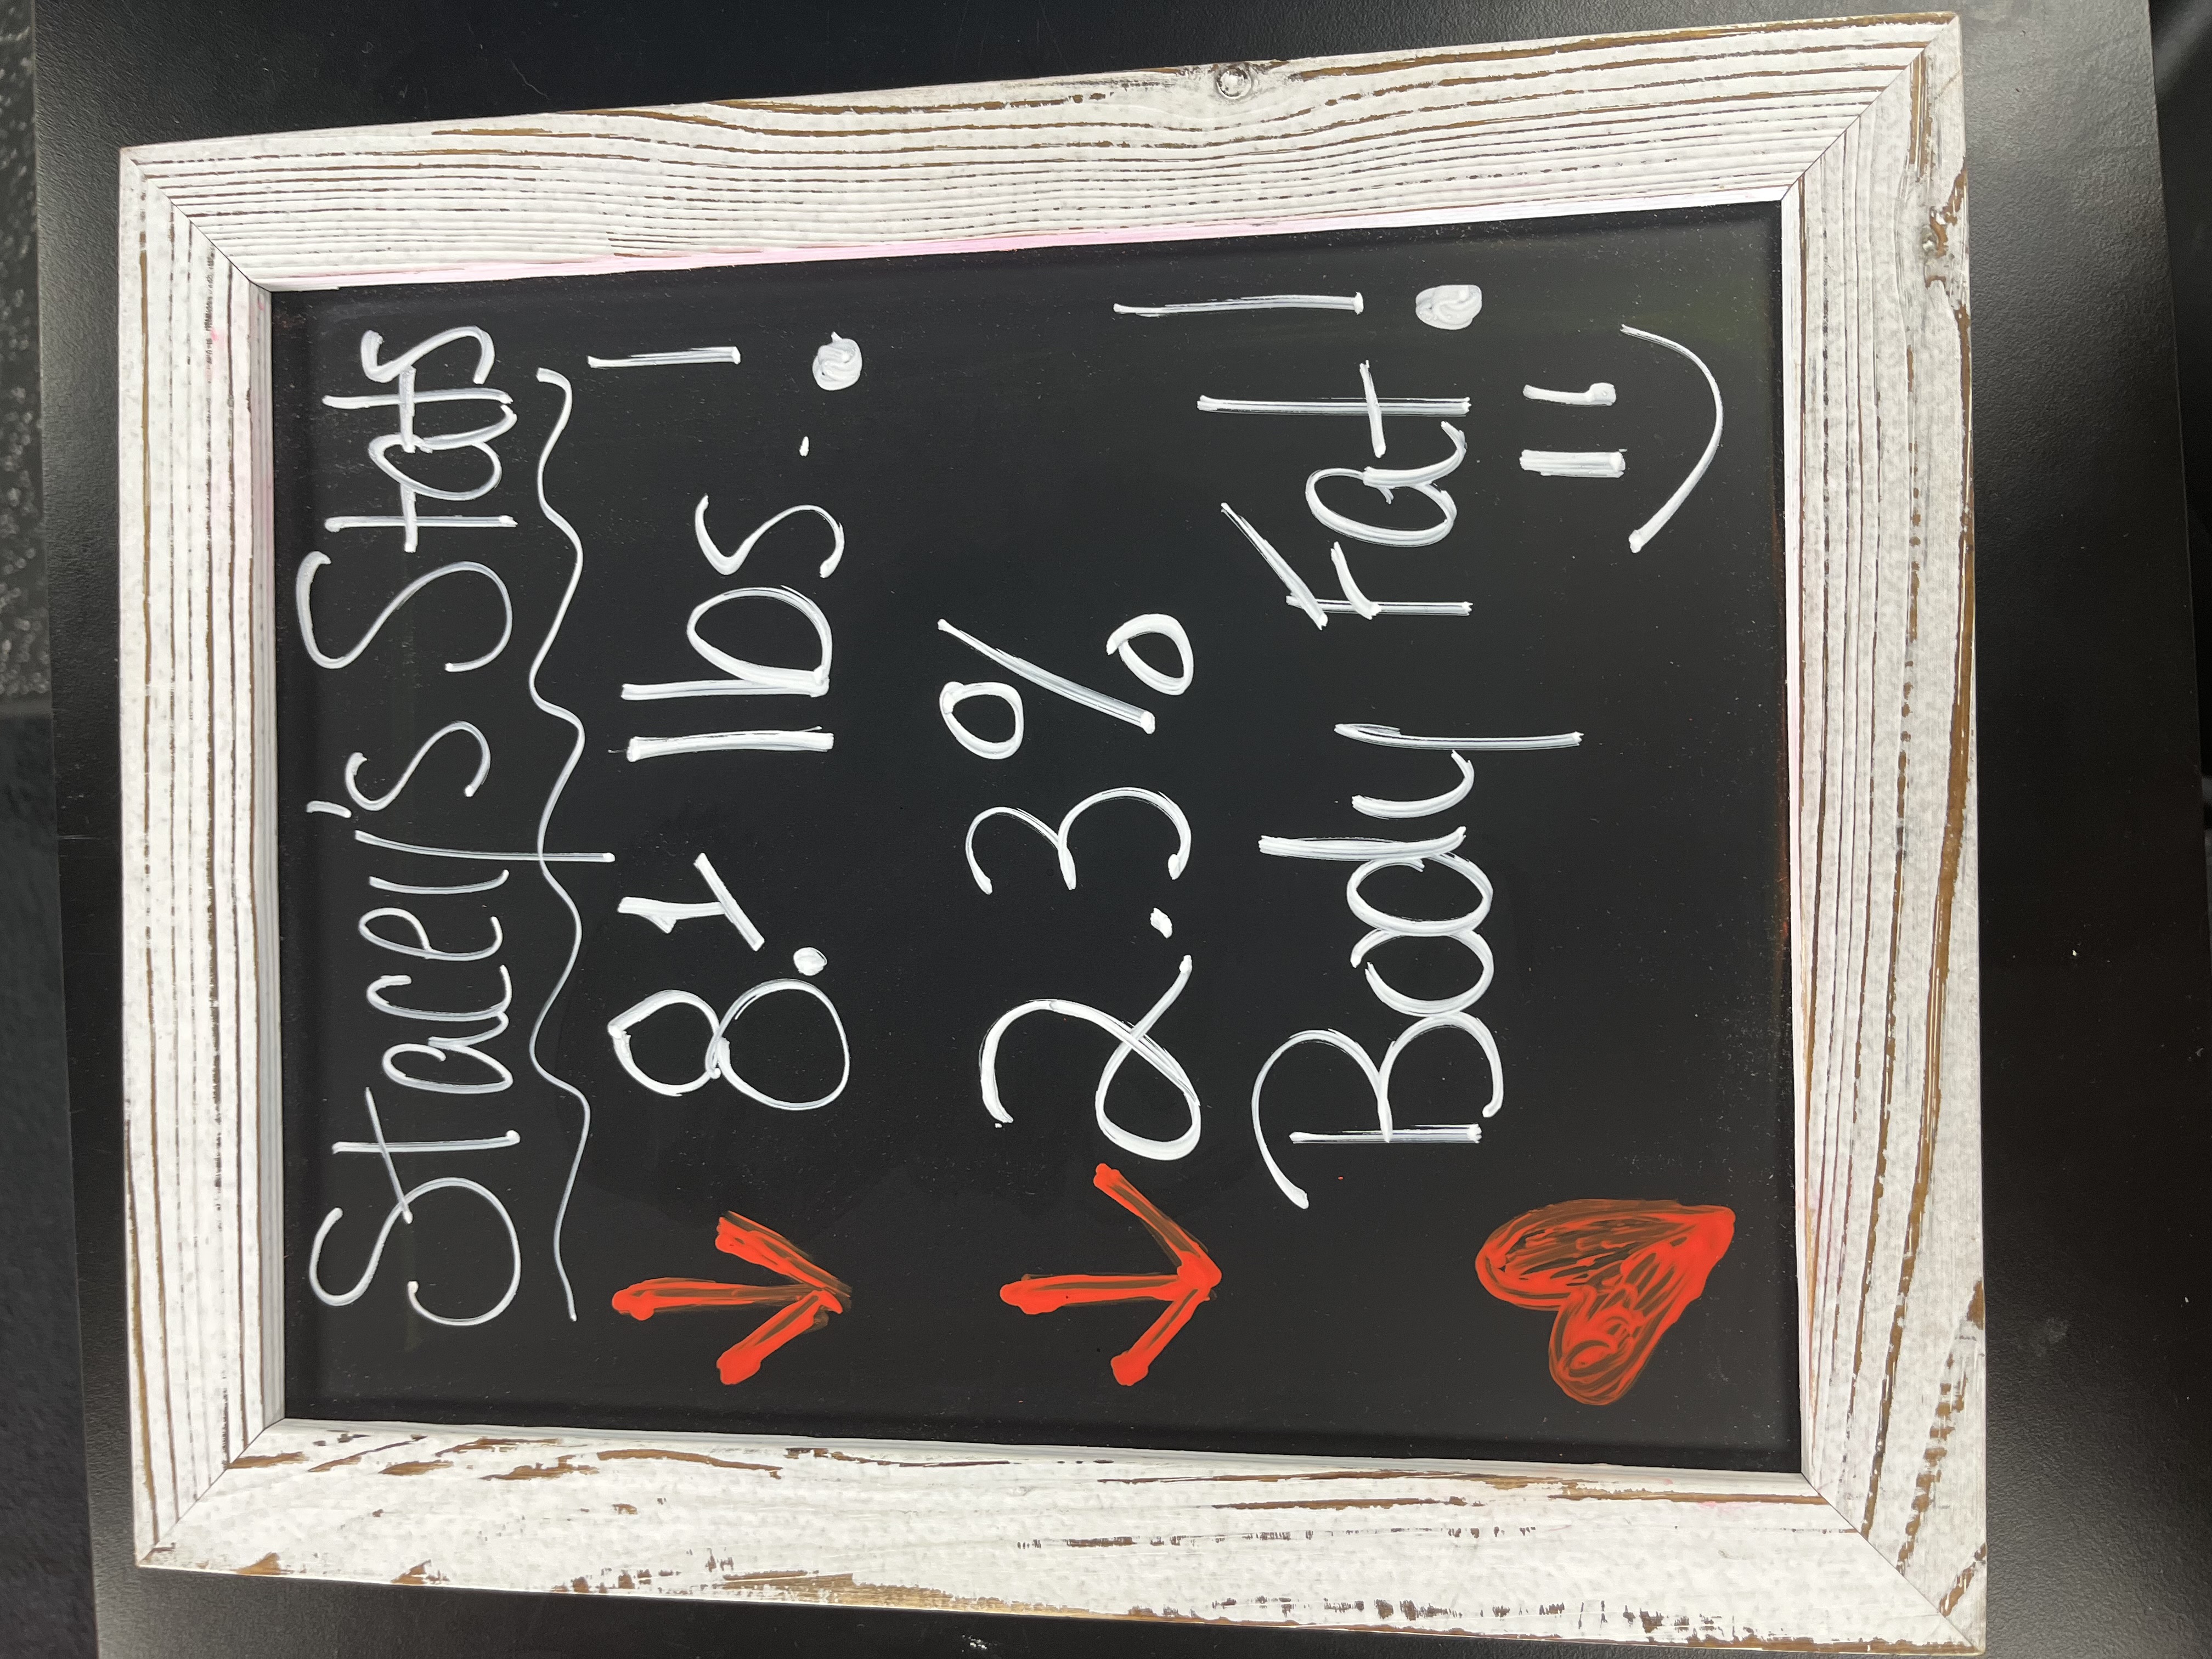 Stacey's Stats
↓ 8.1 lbs. !
↓ 2.3%
Body Fat!